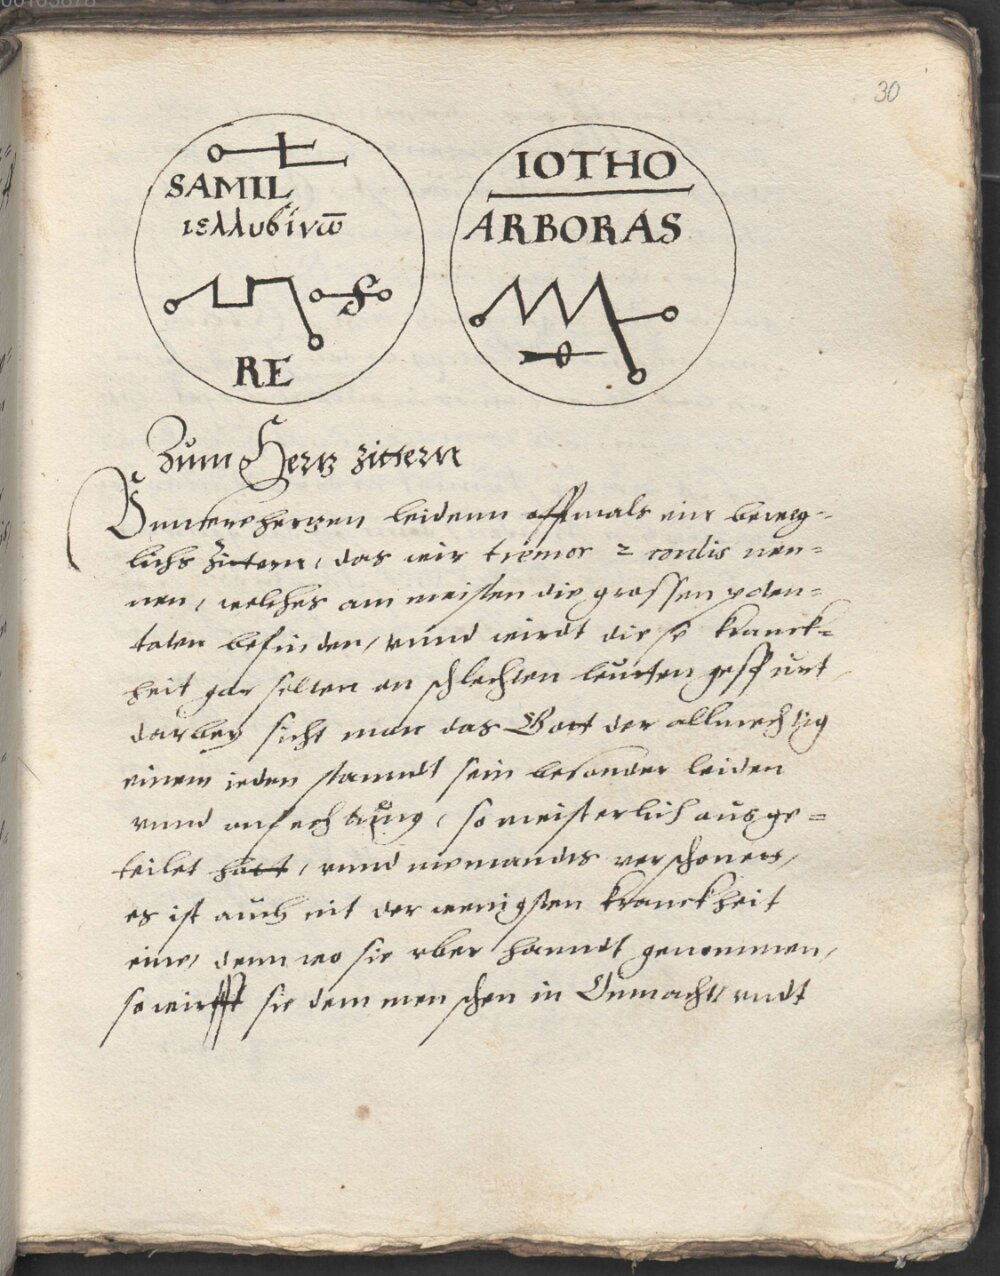 30
SAMIL
ιελλυβίνω̅
RE
IOTHO
ARBORAS
Zum Hertz zittern
herzen leidenn offtmals ein beweg-
lichs Zittern, das wir tremor cordis nen=
nen, welches am meisten die grossen poten=
taten befinden, vnnd wirdt diese kranck=
heit gar selten an schlechten leutten gespurt,
darbey sicht man das Gott der allmechtig
einem ieden standt sein besonder leiden
vnnd anfechtung, so meisterlich ausge=
teilet hatt, vnnd niemandts verschonet,
es ist auch nit der wenigsten kranckheit
eine, denn wo sie vber handt genommen,
so wirfft sie den menschen in Onmacht, vndt